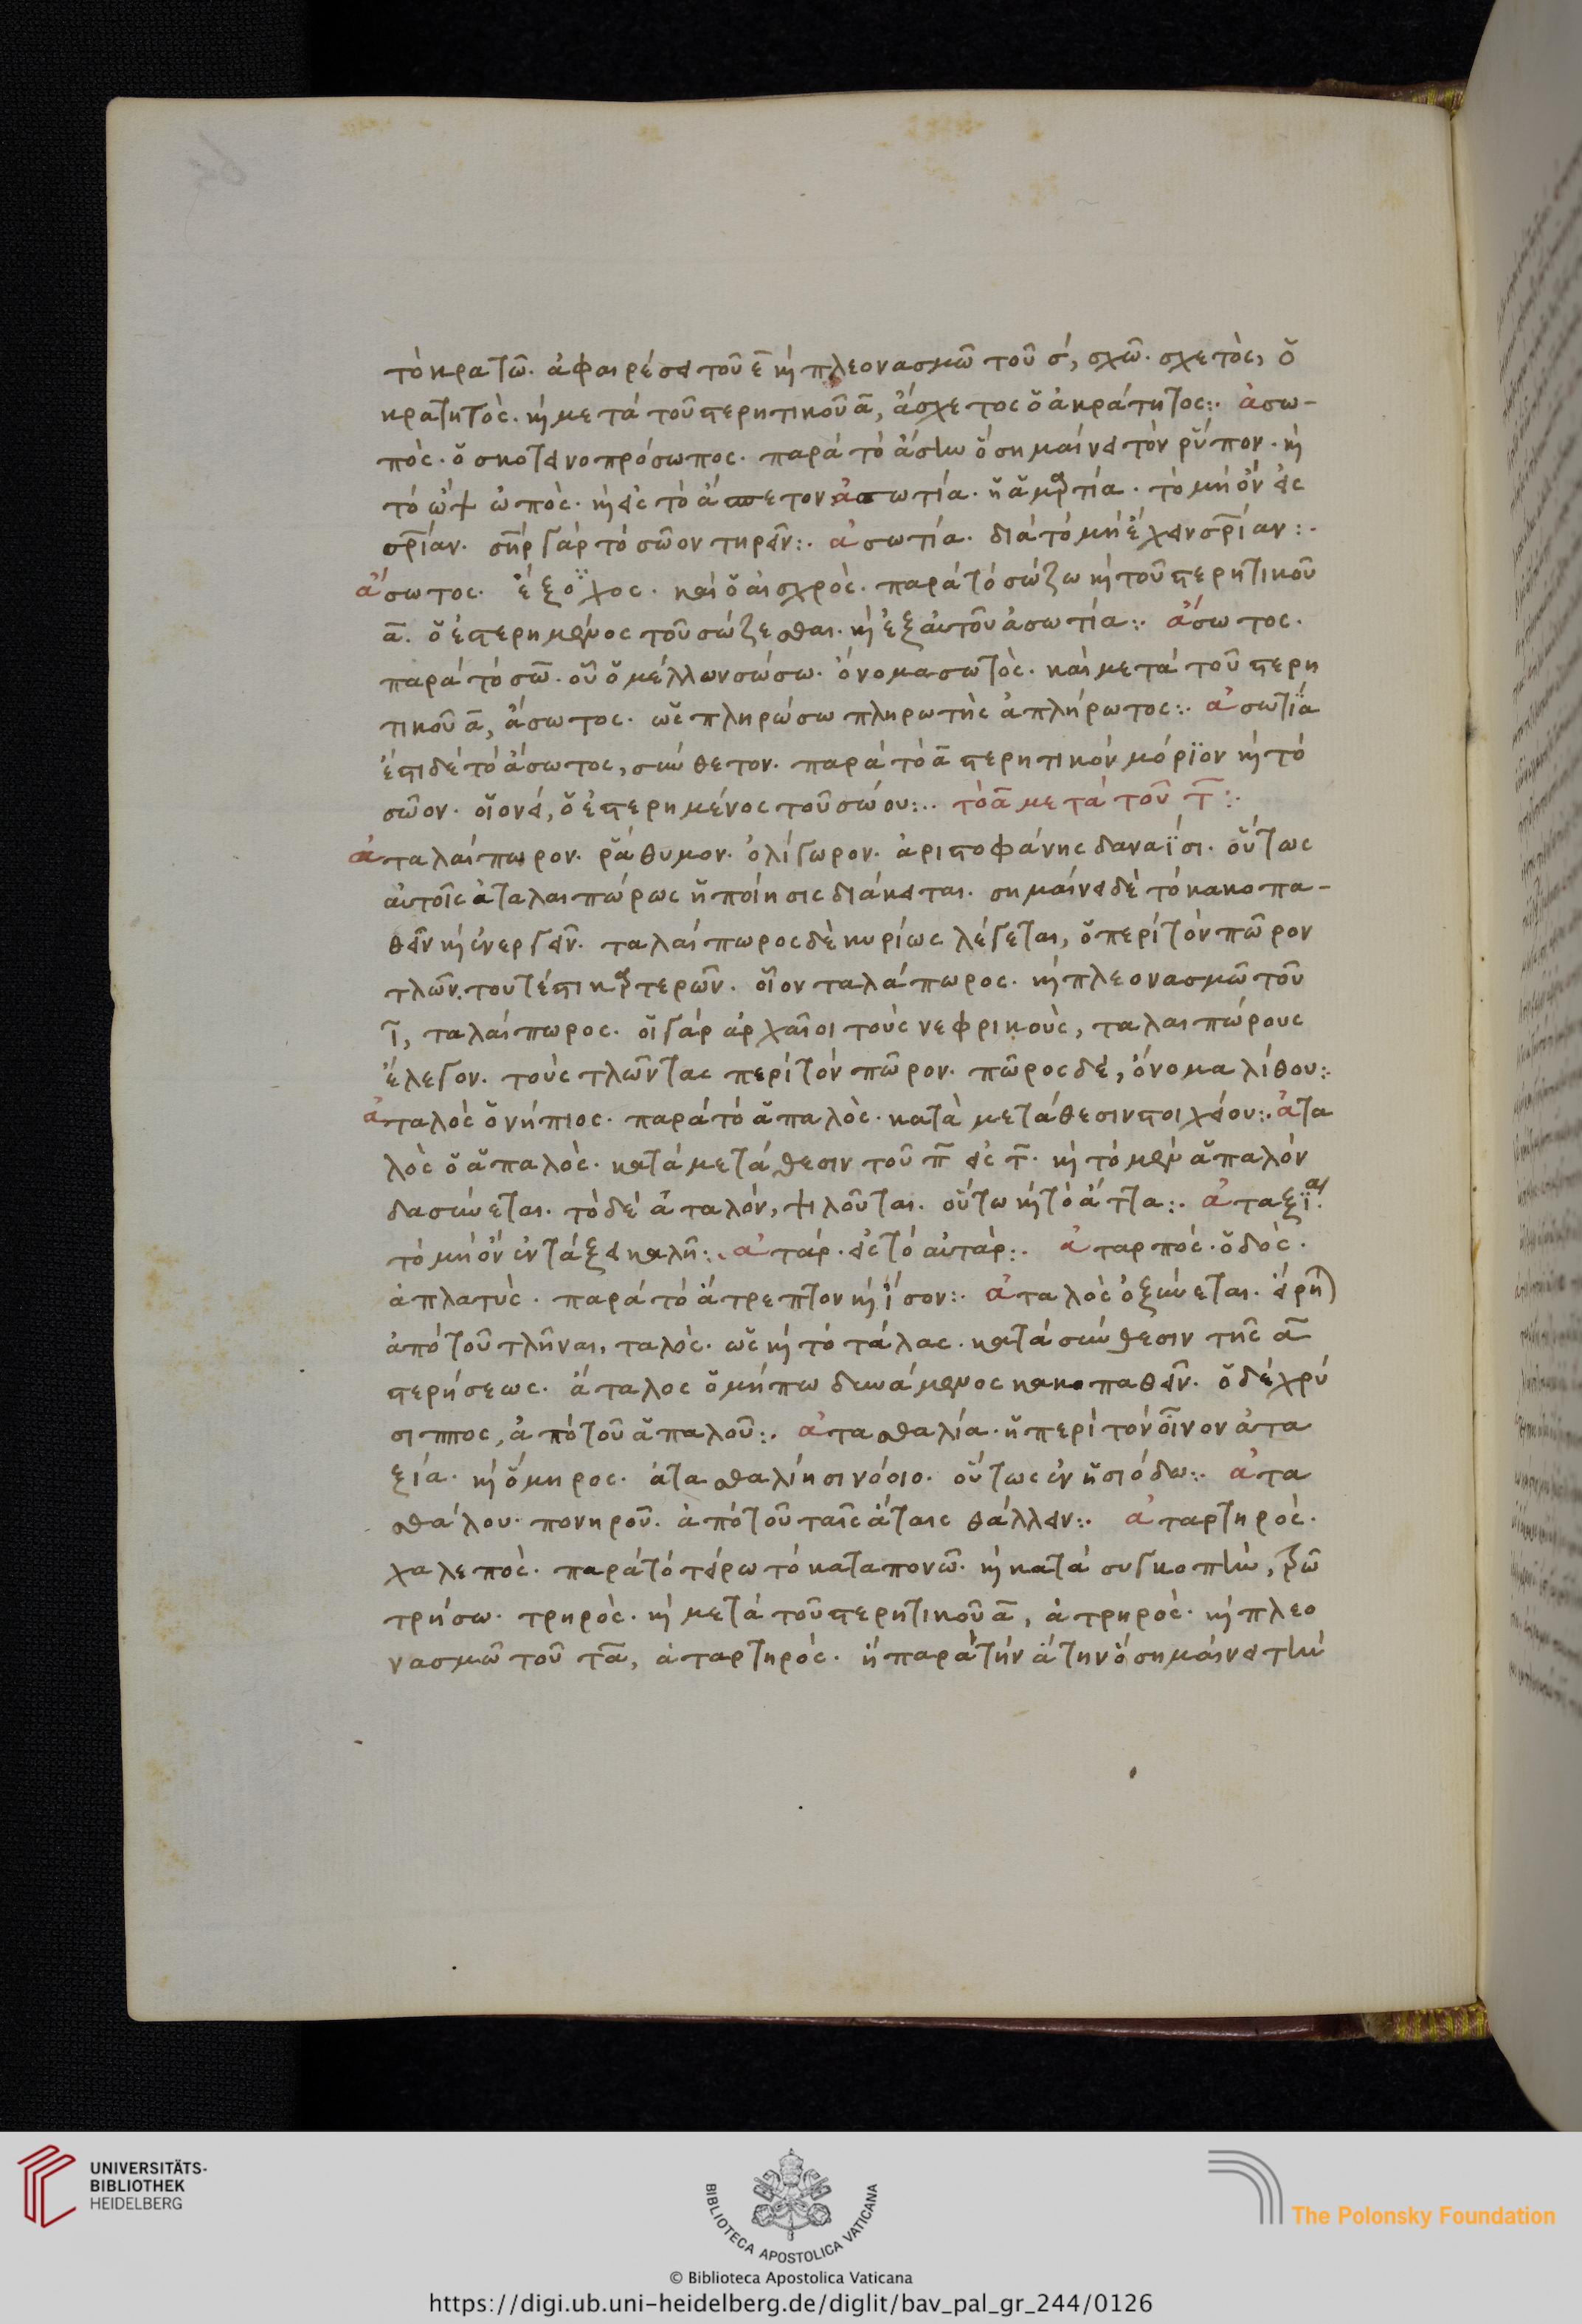 τὸ κρατῶ. ἀφαιρέσει τοῦ ε̄ κ πλεονασμῶ τοῦ σ, σχῶ. σχετὸς, ὁ
κρατητὸς. κ μετὰ τοῦ στερητικοῦ ᾱ, ἄσχετος ὁ ἀκράτητος:. ἀσω-
πὸς. ὁ σκοτεινοπρόσωπος. παρὰ τὸ ἄσιν ὃ σημαίνει τὸν ῥύπον. κ
τὸ ὢψ ὠπὸς. κ εἰς τὸ ἀσωτία. ἡ ἁμρτία. τὸ μὴ ὂν εἰς
σρίαν. σηρ γὰρ τὸ σῶον τηρεῖν:. ἀσωτία. διὰ τὸ μὴ ἔχειν σρίαν:.
ἄσωτος. καὶ ὁ αἰσχρὸς. παρὰ τὸ σώζω κ τοῦ στερητικοῦ
ᾱ. ὁ ἐστερημένος τοῦ σώζεσθαι. κ ἐξ αὐτοῦ ἀσωτία:. ἄσωτος.
παρὰ τὸ σῶ. οὗ ὁ μέλλων σώσω. ὄνομα σωτὸς. καὶ μετὰ τοῦ στερη
τικοῦ ᾱ, ἄσωτος. ὡς πληρώσω πληρωτὴς ἀπλήρωτος:. ἀσωτία
ἔστι δὲ τὸ ἄσωτος, σύνθετον. παρὰ τὸ ᾱ στερητικὸν μόριον κ τὸ
σῶον. οἱονεί, ὁ ἐστερημένος τοῦ σώου:. τὸ ᾱ μετὰ τοῦ τ̄:.
ἀταλαίπωρον. ῥάθυμον. ὀλίγωρον. ἀριστοφάνης δαναΐσι. οὕτως
αὐτοῖς ἀταλαιπώρως ἡ ποίησις διάκειται. σημαίνει δὲ τὸ κακοπα-
θεῖν κ ἐνεργεῖν. ταλαίπωρος δὲ κυρίως λέγεται, ὁ περὶ τὸν πῶρον
τλῶν. τουτέστι κρτερῶν. οἷον ταλάπωρος. κ πλεονασμῶ τοῦ
ῑ, ταλαίπωρος. οἱ γὰρ ἀρχαῖοι τοὺς νεφρικοὺς, ταλαιπώρους
ἔλεγον. τοὺς τλῶντας περὶ τὸν πῶρον. πῶρος δέ, ὄνομα λίθου:.
ἀταλὸς ὁ νήπιος. παρὰ τὸ ἁπαλὸς. κατὰ μετάθεσιν στοιχείου:. ἀτα
λὸς ὁ ἁπαλὸς. κατὰ μετάθεσιν τοῦ π̄ εἰς τ̄. κ τὸ μὲν ἁπαλὸν
δασύνεται. τὸ δὲ ἀταλόν, ψιλοῦται. οὕτω κ τὸ ἄττα:. ἀταξΐαι.
τὸ μὴ ὂν ἐν τάξει καλῆ:. ἀτάρ. εἰς τὸ αὐτάρ:. ἀταρπὸς. ὁδὸς.
ἁπλατὺς. παρὰ τὸ ἄτρεπτον κ ἴσον:. ἀταλὸς ὀξύνεται. εἴρη
ἀπὸ τοῦ τλῆναι, ταλὸς. ὡς κ τὸ τάλας. κατὰ σύνθεσιν τῆς ᾱ
στερήσεως. ἄταλος ὁ μήπω δυνάμενος κακοπαθεῖν. ὁ δὲ χρύ
σιππος, ἀπὸ τοῦ ἁπαλοῦ:. ἀτασθαλία. ἡ περὶ τὸν οἶνον ἀτα
ξία. κ ὅμηρος. ἀτασθαλίησι νόοιο. οὕτως ἐν ἡσιόδω:. ἀτα
σθάλου. πονηροῦ. ἀπὸ τοῦ ταῖς ἄταις θάλλειν:. ἀταρτηρὸς.
χαλεπὸς. παρὰ τὸ τείρω τὸ καταπονῶ. κ κατὰ συγκοπὴν, τρῶ
τρήσω. τρηρὸς. κ μετὰ τοῦ στερητικοῦ ᾱ, ἀτρηρὸς. κ πλεο
νασμῶ τοῦ τᾱ, ἀταρτηρός. ἢ παρὰ τὴν ἄτην ὃ σημαίνει τὴν
UNIVERSITÄTS-
BIBLIOTHEK
HEIDELBERG
BIBLIOTECA APOSTOLICA VATICANA
The Polonsky Foundation
© Biblioteca Apostolica Vaticana
https://digi.ub.uni-heidelberg.de/diglit/bav_pal_gr_244/0126